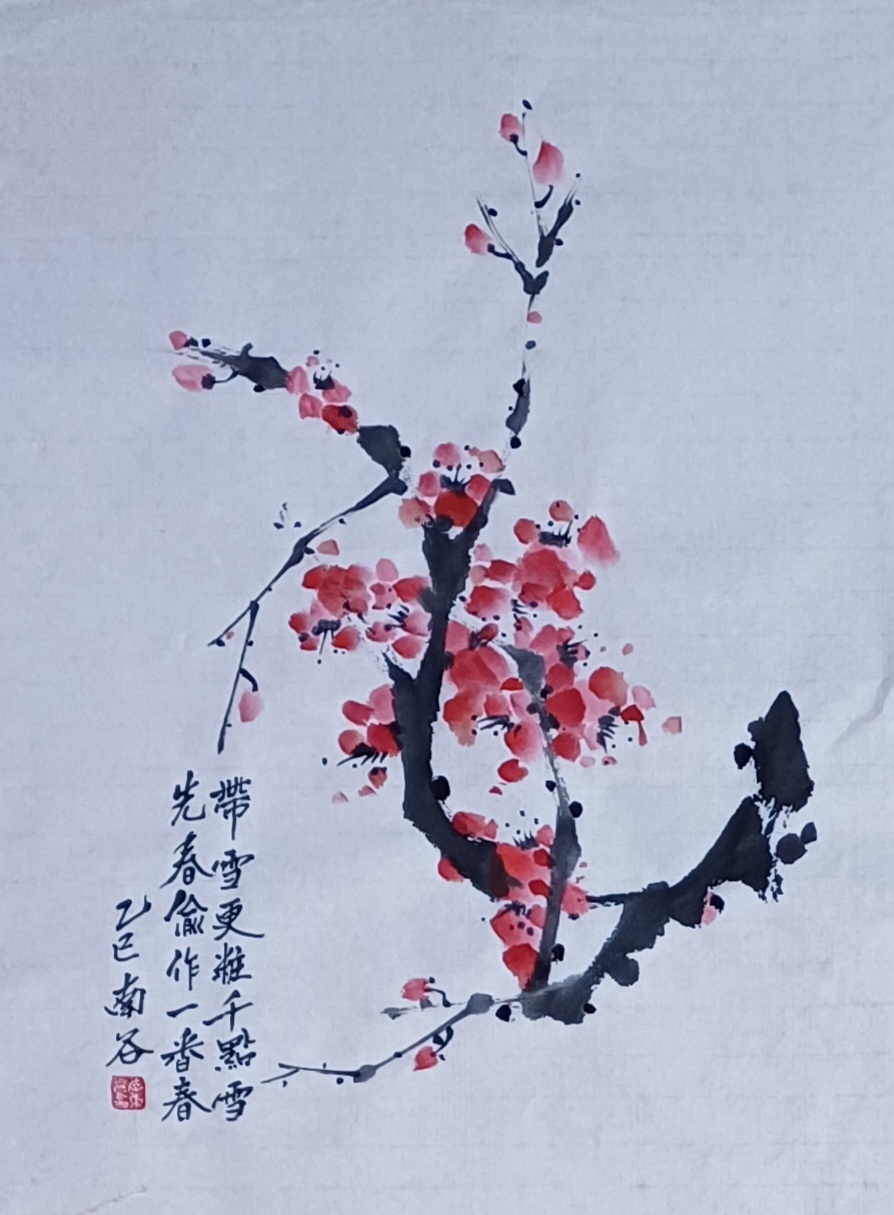 帶雪更粧千點雪
先春偷作一番春
乙巳南谷